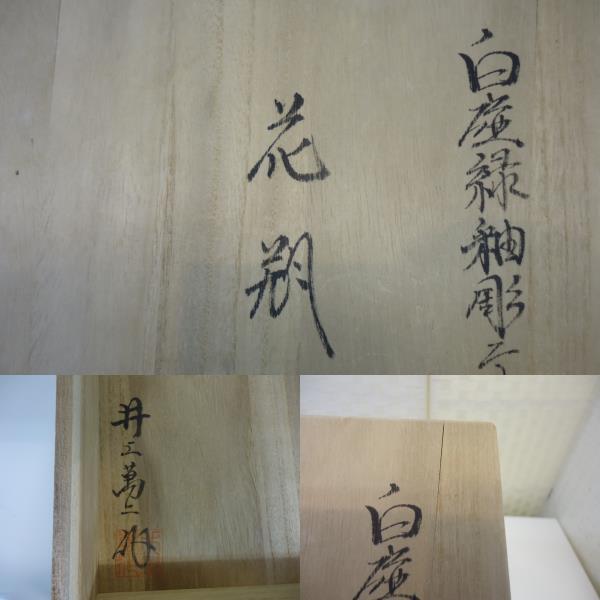 白磁緑釉彫文
花瓶
井上萬二作
白磁